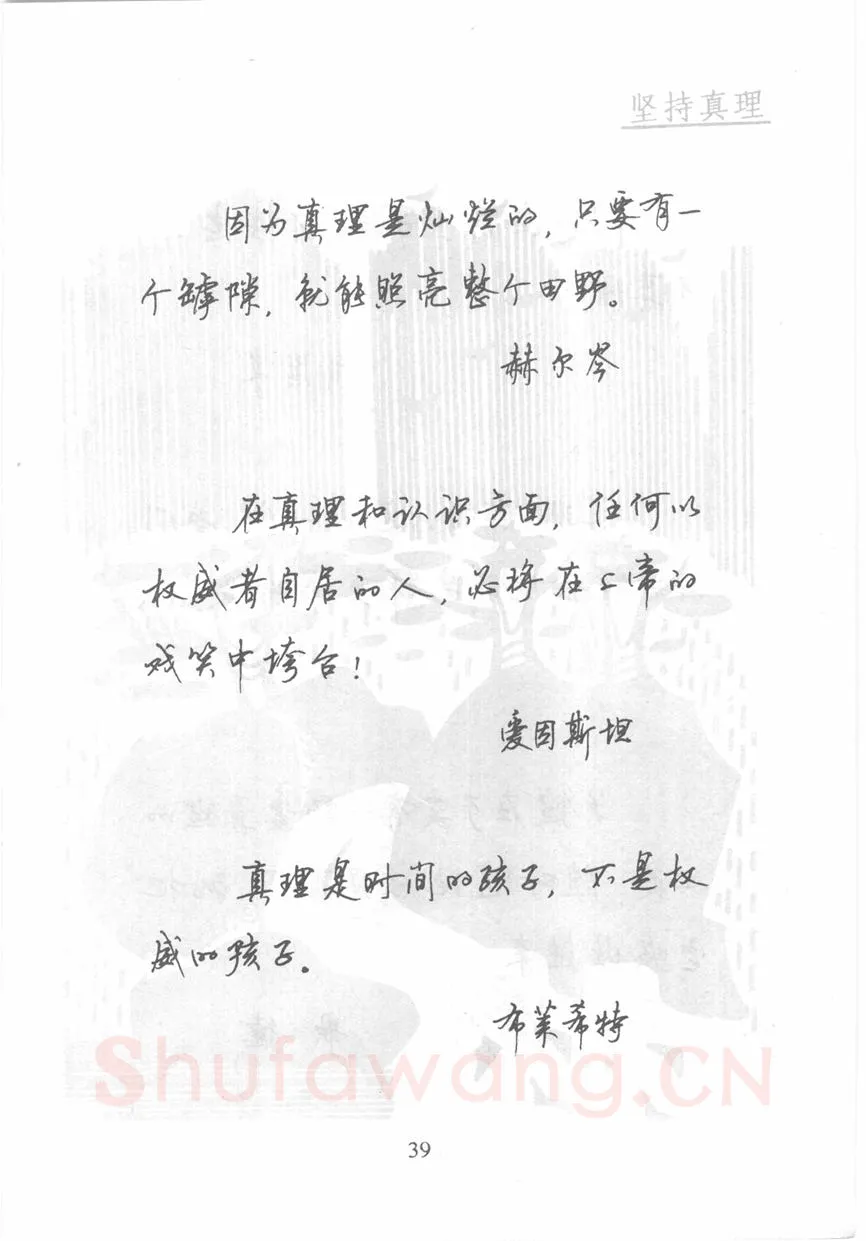 坚持真理
因为真理是灿烂的，只要有一
个罅隙，就能照亮整个田野。
赫尔岑
在真理和认识方面，任何以
权威者自居的人，必将在上帝的
戏笑中垮台！
爱因斯坦
真理是时间的孩子，不是权
威的孩子。
布莱希特
Shufawang.CN
39